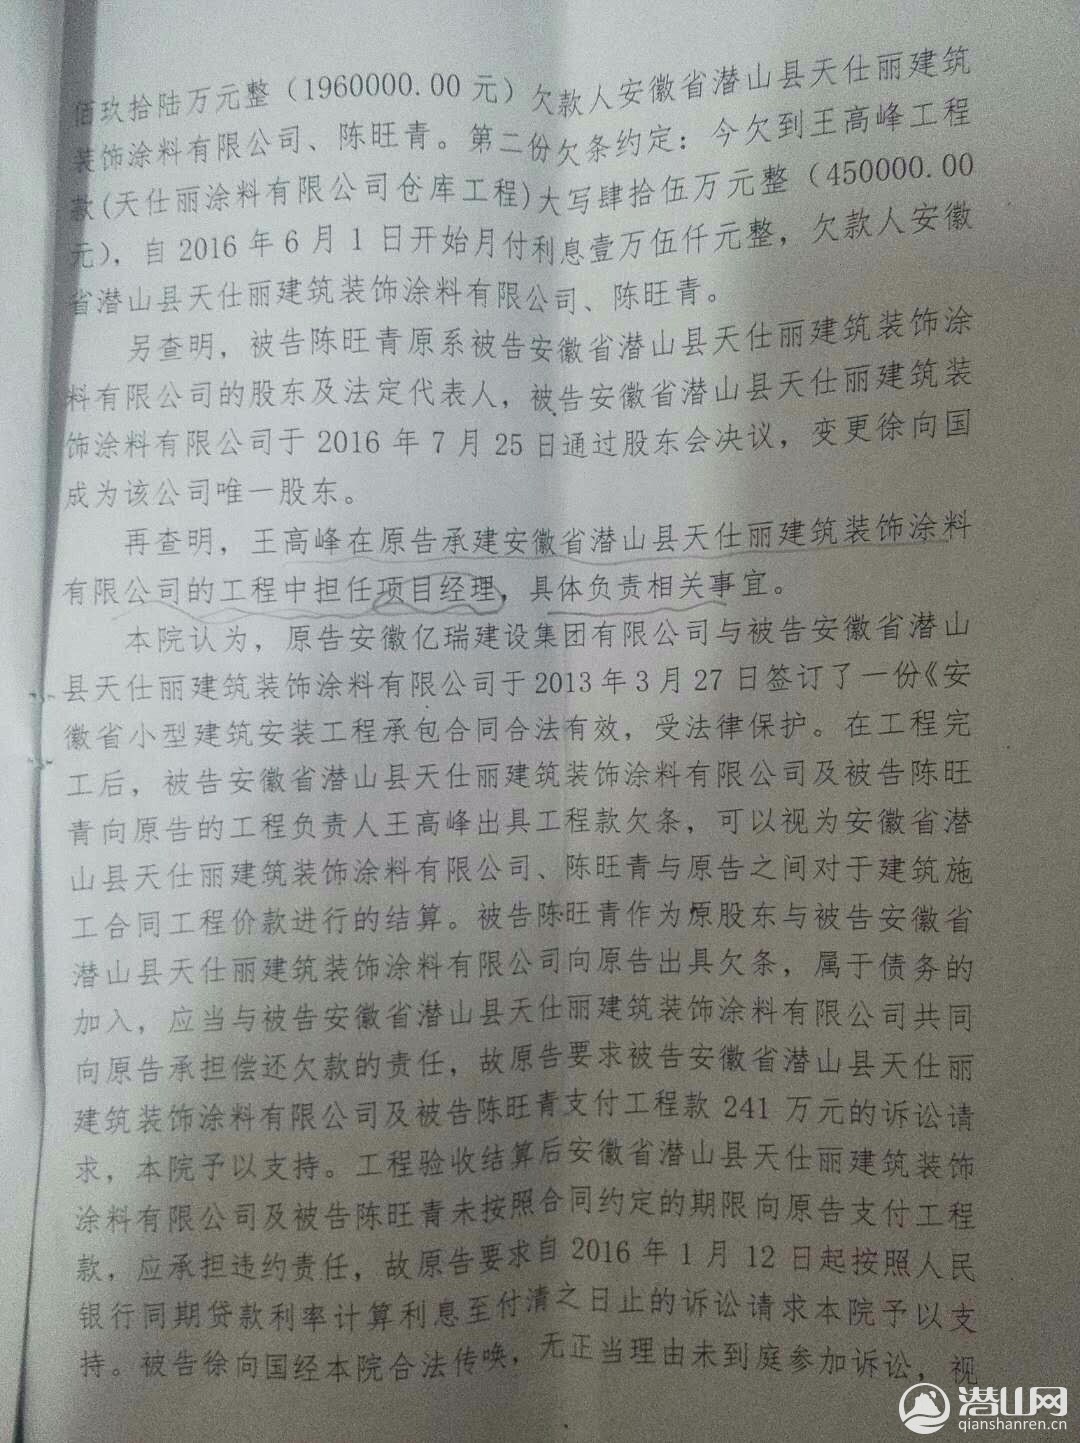 佰玖拾陆万元整（1960000.00 元）欠款人安徽省潜山县天仕丽建筑
装饰涂料有限公司、陈旺青。第二份欠条约定：今欠到王高峰工程
款(天仕丽涂料有限公司仓库工程)大写肆拾伍万元整（450000.00
元），自 2016 年 6 月 1 日开始月付利息壹万伍仟元整，欠款人安徽
省潜山县天仕丽建筑装饰涂料有限公司、陈旺青。
另查明，被告陈旺青原系被告安徽省潜山县天仕丽建筑装饰涂
料有限公司的股东及法定代表人，被告安徽省潜山县天仕丽建筑装
饰涂料有限公司于 2016 年 7 月 25 日通过股东会决议，变更徐向国
成为该公司唯一股东。
再查明，王高峰在原告承建安徽省潜山县天仕丽建筑装饰涂料
有限公司的工程中担任项目经理，具体负责相关事宜。
本院认为，原告安徽亿瑞建设集团有限公司与被告安徽省潜山
县天仕丽建筑装饰涂料有限公司于 2013 年 3 月 27 日签订了一份《安
徽省小型建筑安装工程承包合同合法有效，受法律保护。在工程完
工后，被告安徽省潜山县天仕丽建筑装饰涂料有限公司及被告陈旺
青向原告的工程负责人王高峰出具工程款欠条，可以视为安徽省潜
山县天仕丽建筑装饰涂料有限公司、陈旺青与原告之间对于建筑施
工合同工程价款进行的结算。被告陈旺青作为原股东与被告安徽省
潜山县天仕丽建筑装饰涂料有限公司向原告出具欠条，属于债务的
加入，应当与被告安徽省潜山县天仕丽建筑装饰涂料有限公司共同
向原告承担偿还欠款的责任，故原告要求被告安徽省潜山县天仕丽
建筑装饰涂料有限公司及被告陈旺青支付工程款 241 万元的诉讼请
求，本院予以支持。工程验收结算后安徽省潜山县天仕丽建筑装饰
涂料有限公司及被告陈旺青未按照合同约定的期限向原告支付工程
款，应承担违约责任，故原告要求自 2016 年 1 月 12 日起按照人民
银行同期贷款利率计算利息至付清之日止的诉讼请求本院予以支
持。被告徐向国经本院合法传唤，无正当理由未到庭参加诉讼，视
潜山网
qianshanren.cn